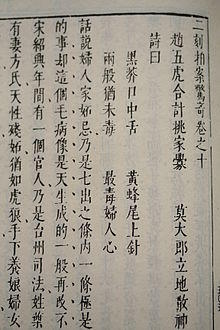 二刻拍案驚奇卷之十
趙五虎合計挑家釁　莫大郎立地散神
詩曰
黑莽口中舌　黃蜂尾上針
兩般猶未毒　最毒婦人心
話說婦人家妬忌乃是七出之條內一條極是
的事却這個毛病像是天生成的一般再改不
宋紹興年間有一個官人乃是台州司法姓葉
有妻方氏天性殘妬猶如虎狼手下養娘婦女